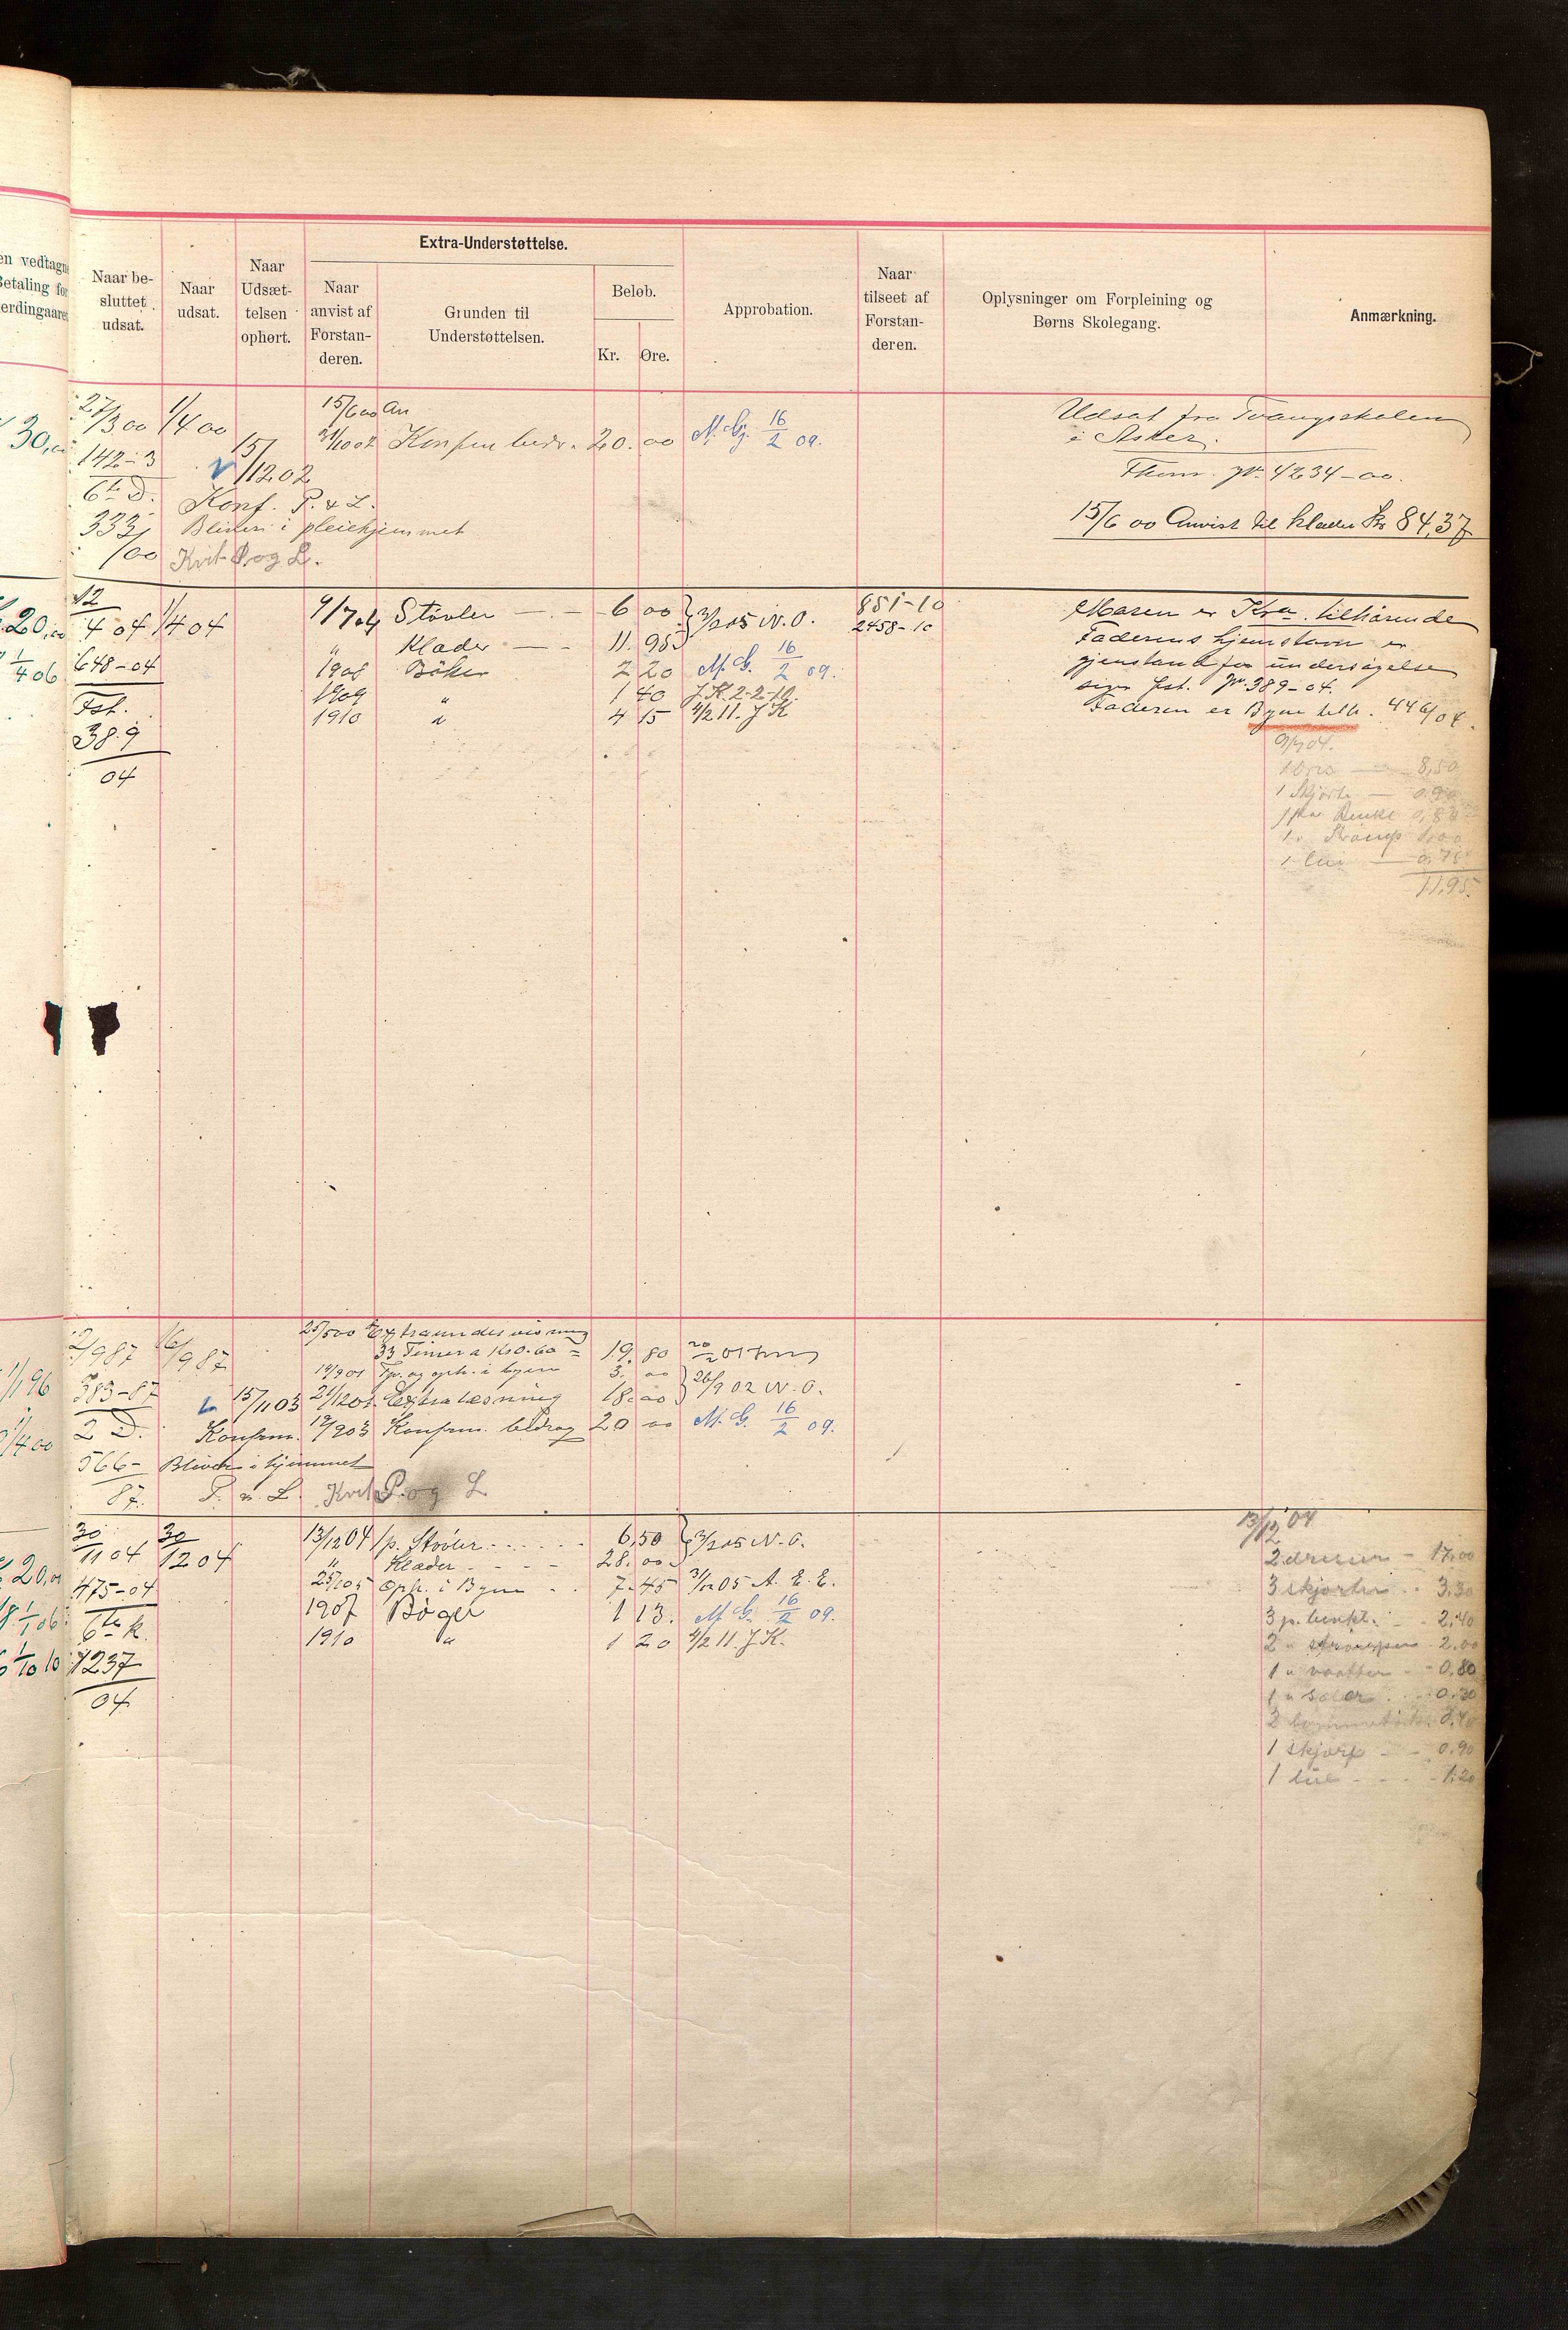 en vedtagne
Betaling for
erdingsaaret
Naar besluttet udsat.
Naar udsat.
Naar Udsættelsen ophørt.
Extra-Understøttelse.
Naar anvist af Forstanderen.
Grunden til Understøttelsen.
Beløb.
Kr.
Øre.
Approbation.
Naar tilseet af Forstanderen.
Oplysninger om Forpleining og Børns Skolegang.
Anmærkning.
30,00
27/3 00 1/4 00
142-3
6te D.
333
/00
15/12 02
Konf. P. & L.
Bliver i pleiehjemmet
Kvit P. og L.
15/6 00
31/10 02 20. 00 M. G. 16/2 09.
Udsat fra Tvangsskolen
i Asker.
Jr. 4234-00.
15/6 00 Anvist til klæder Kr 84,37
20,00
1/4 06
12/4 04 1/4 04
648-04
Fst.
389
04
9/7 04 Støvler — - 6 00 3/2 05 N. O. 851-10
" Klæder — - 11. 95 2458-10
1908 Bøker 2 20 M. G. 16/2 09.
1909 " 1 40 J. K. 2-2-10.
1910 " 4 15 4/2 11. J K
Moren er Kra. tilhørende
Faderens hjemstavn er
gjenstand for undersøgelse
Jr. 389-04.
Faderen er Byen tilh. 446/04.
9/7 04.
8,50
1 Skjorte — 0.90
1 par Benkl 0,80
1 " Strømp 1,00
1 lue — 0,75
11,95.
1/1 96
1/4 00
2/9 87 16/9 87
383-87
2 D.
566-
87.
15/11 03
Konfirm.
Bliver i hjemmet
P. & L. Kvit P. og L
25/5 00 Extraundervisning
33 Timer a Kr 0.60 = 19. 80 20/2 01
14/9 01 Tpr. og oph. i byen 3. 00 26/9 02 N. O.
21/12 01 Extralæsning 18. 00
12/2 03 Konfirm. bidrag 20 00 M. G. 16/2 09.
20,00
1/1 06
1/10 10
30/11 04 30/12 04
475-04
6te k.
1237
04
13/12 04 1 p. Støvler - - - 6,50 3/2 05 N. O.
" Klæder - - - 28. 00
25/1 05 Oph. i Byen - - 7. 45 31/12 05 A. E. E.
1907 Bøger 1 13. M. G. 16/2 09.
1910 " 1 20 4/2 11. J K.
13/12 04
2 dresser - 17,00
3 skjorter - 3.30
3 p. benkl. - 2,40
2 " strømper - 2.00
1 " vaatter - 0.80
1 " saaler - 0.30
1 skjærf - 0.90
1 lue - - - 1.20